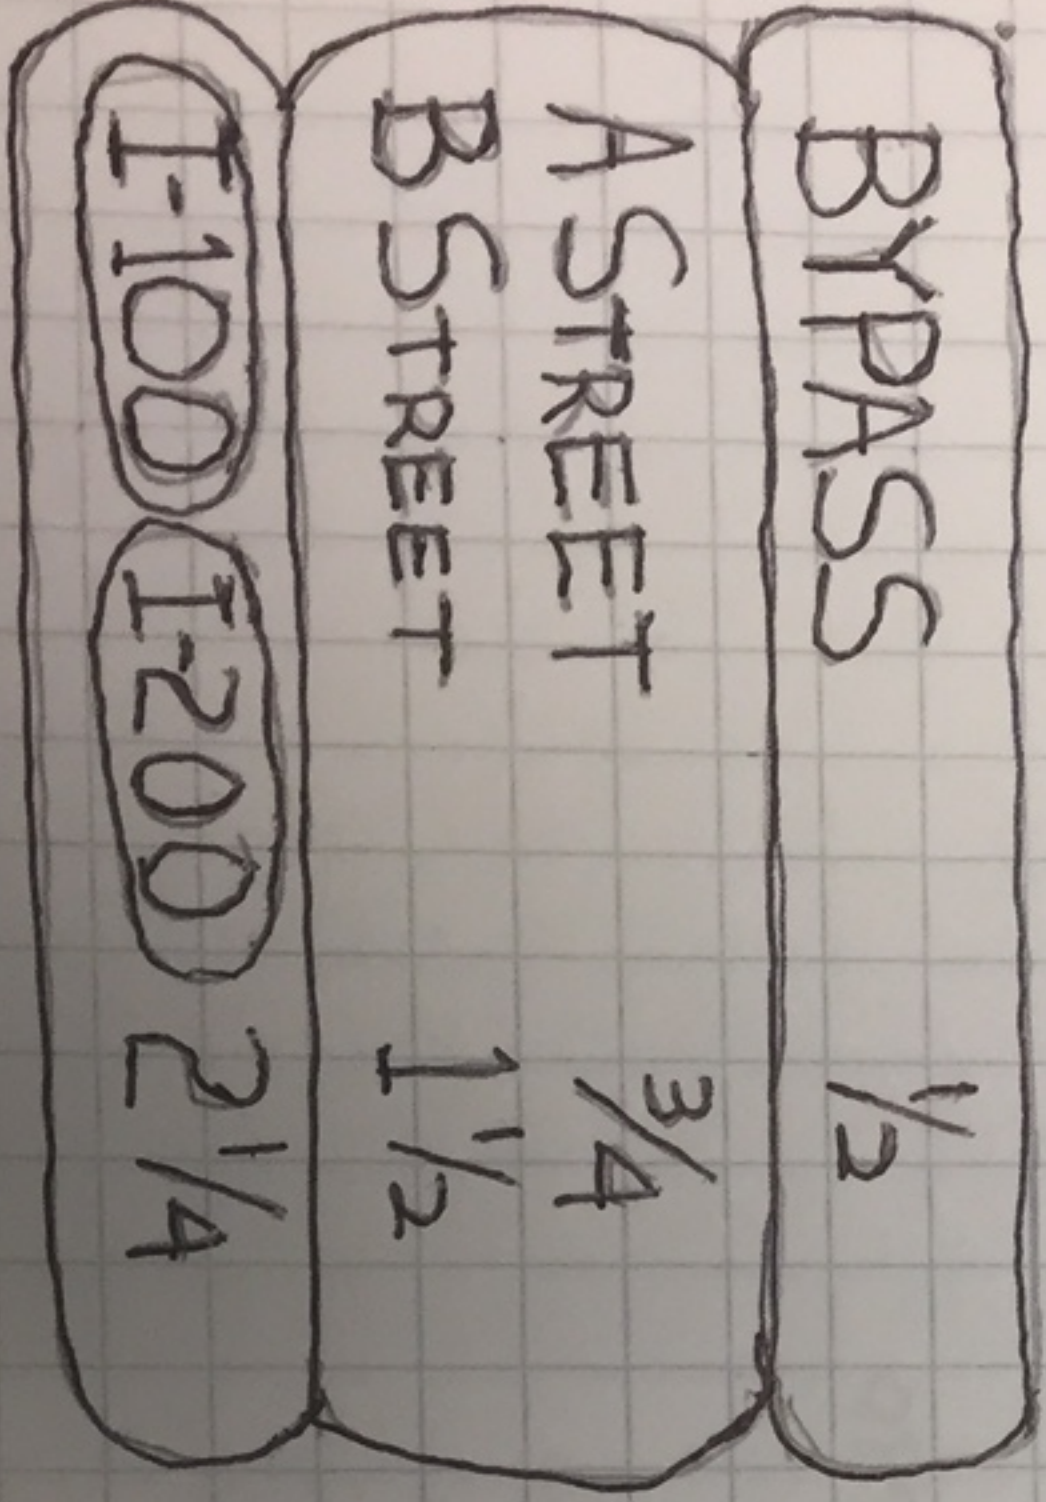 BYPASS 1/2
A STREET 3/4
B STREET 1 1/2
I-100 I-200 2 1/4